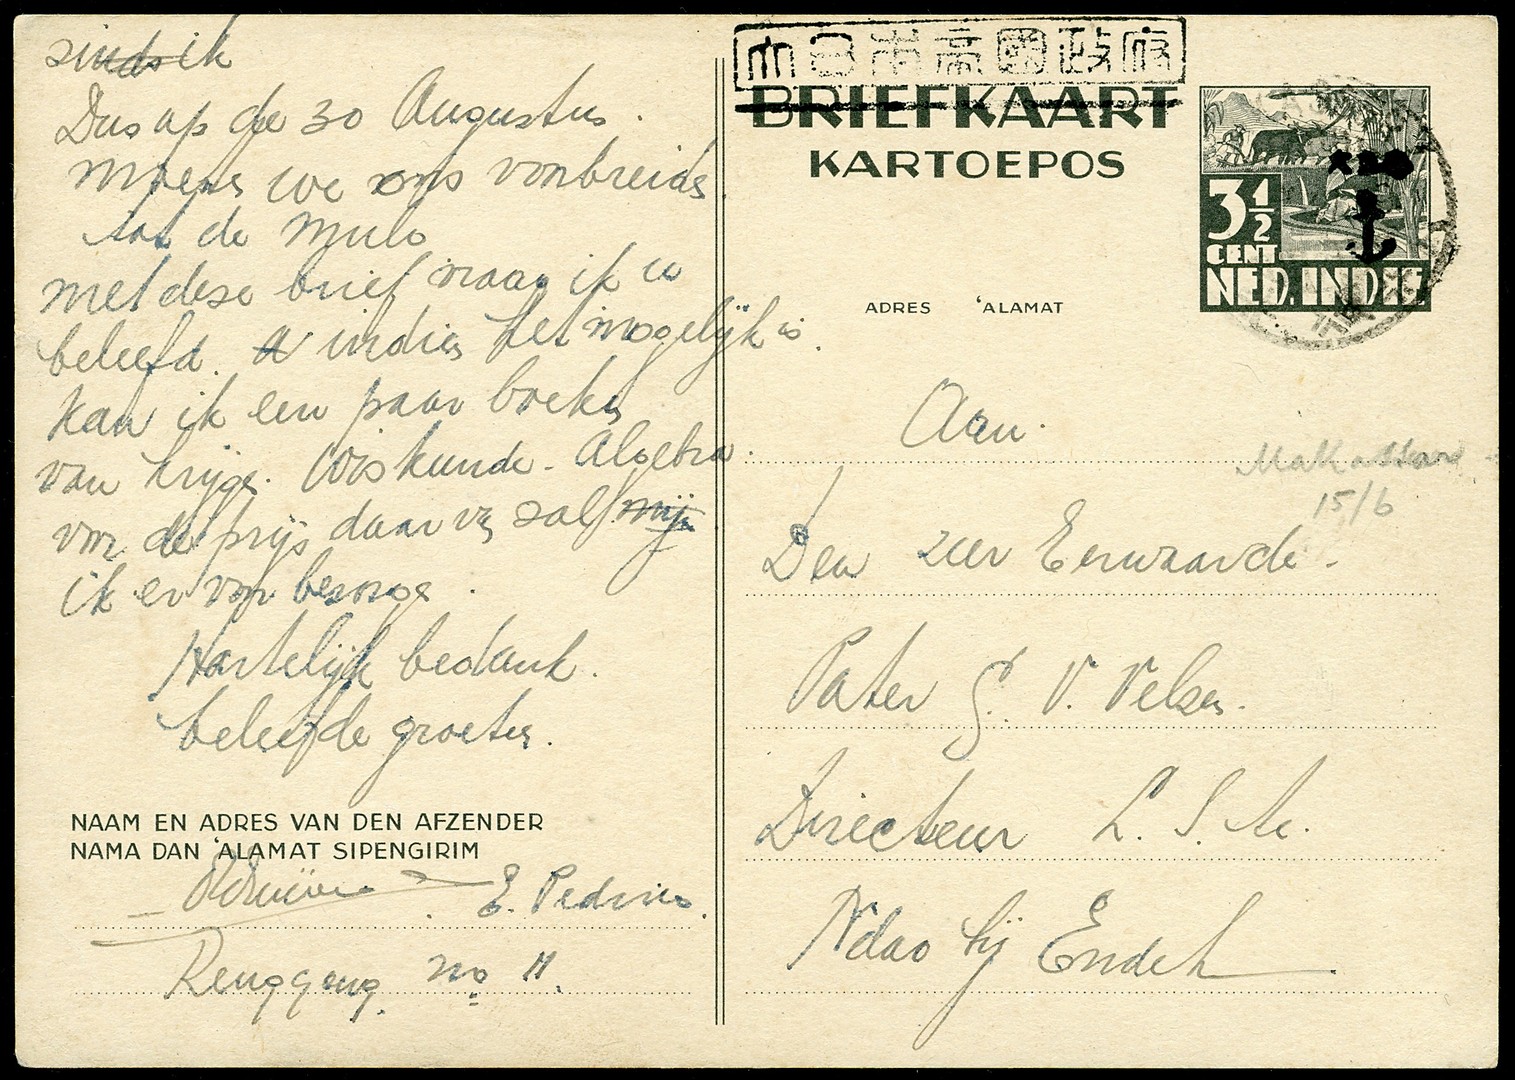 sinds ik
Dus op de 30 Augustus.
moeten we ons voorbreids
tot de Mulo
met deze brief vraag ik u
beleefd. indien het mogelijk is.
kan ik een paar boeken
van krijgen. Wiskunde - Algebra.
voor de prijs daar van zal mijn
ik er voor bezorgs.
Hartelijk bedank.
beleefde groeten.
NAAM EN ADRES VAN DEN AFZENDER
NAMA DAN 'ALAMAT SIPENGIRIM
E. Pedries.
Renggeng. no 11.
大日本帝國政府
BRIEFKAART
KARTOEPOS
3½
CENT
NED. INDIE
ADRES 'ALAMAT
Aan.
Makassar
15/6
Den zeer Eerwaarde.
Pater G. V. Velsen.
Directeur L. S. te.
Ndao bij Endeh